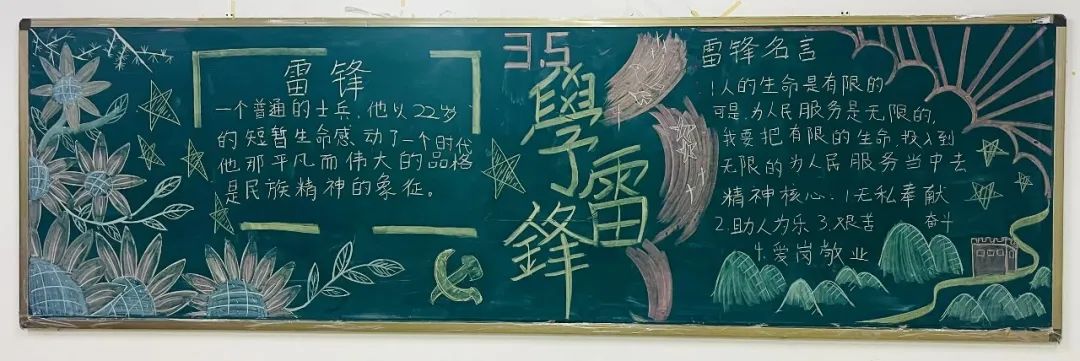 雷锋
一个普通的士兵，他以22岁
的短暂生命感动了一个时代
他那平凡而伟大的品格
是民族精神的象征。
3.5
學雷鋒
雷锋名言
1人的生命是有限的
可是，为人民服务是无限的，
我要把有限的生命，投入到
无限的为人民服务当中去
精神核心：1无私奉献
2.助人为乐 3.艰苦 奋斗
4.爱岗敬业